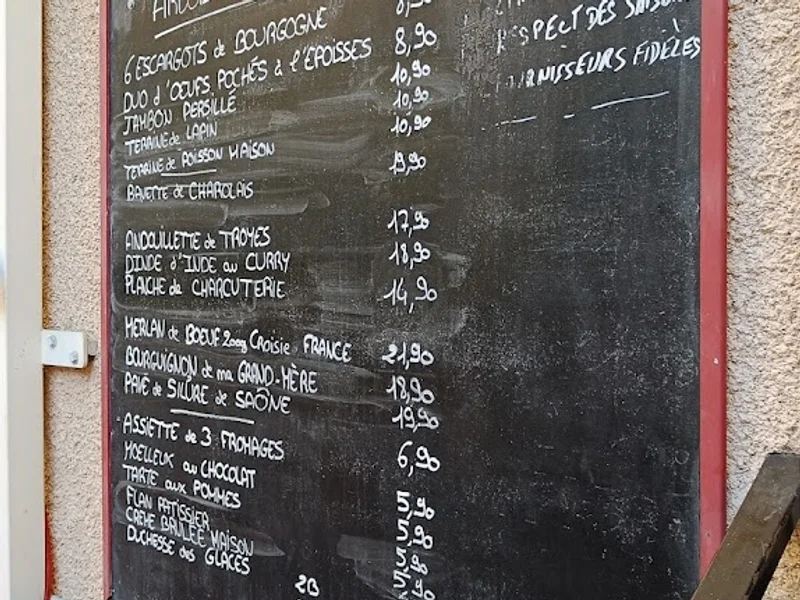 6 ESCARGOTS de BOURGOGNE 8,90
DUO d'OEUFS POCHÉS à l'ÉPOISSES 10,90
JAMBON PERSILLÉ 10,90
TERRINE de LAPIN 10,90
TERRINE de POISSON MAISON 19,90
BAVETTE de CHAROLAIS
ANDOUILLETTE de TROYES 17,90
DINDE d'INDE au CURRY 18,90
PLANCHE de CHARCUTERIE 14,90
MERLAN de BOEUF 200g Croisie FRANCE 21,90
BOURGUIGNON de ma GRAND-MÈRE 18,90
PAVÉ de SILURE de SAÔNE 19,90
ASSIETTE de 3 FROMAGES 6,90
MOELLEUX au CHOCOLAT
TARTE aux POMMES 5,90
FLAN PATISSIER 5,90
CRÈME BRULÉE MAISON 5,90
DUCHESSE des GLACES 5,90
2B
RESPECT DES SAISONS
FOURNISSEURS FIDÈLES